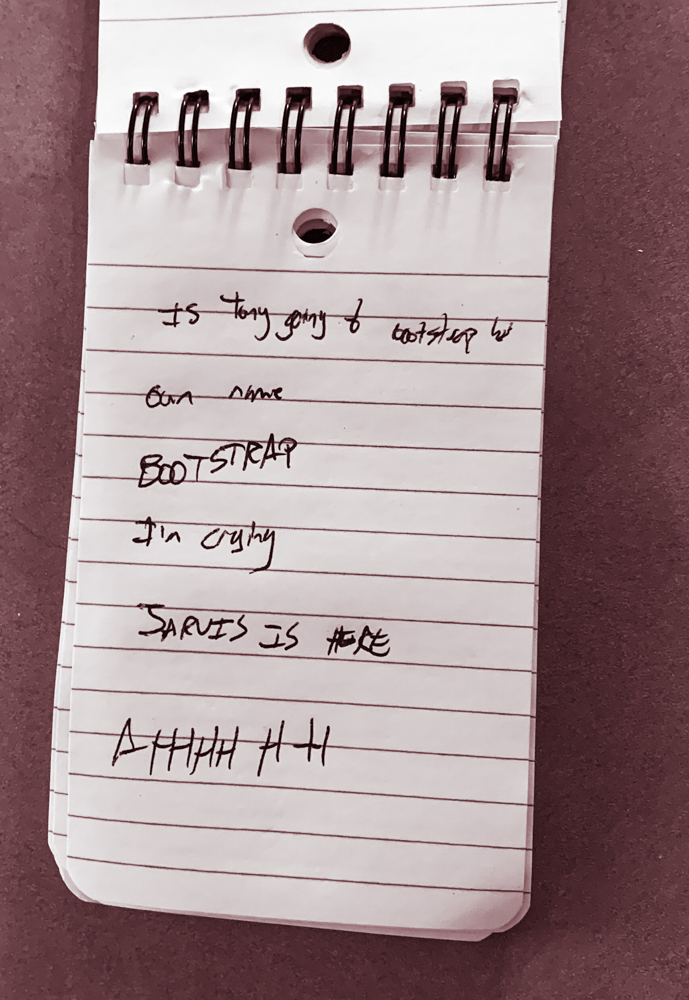 Is Tony going to bootstrap his
own name
BOOTSTRAP
I'm crying
JARVIS IS HERE
AHHHH H H